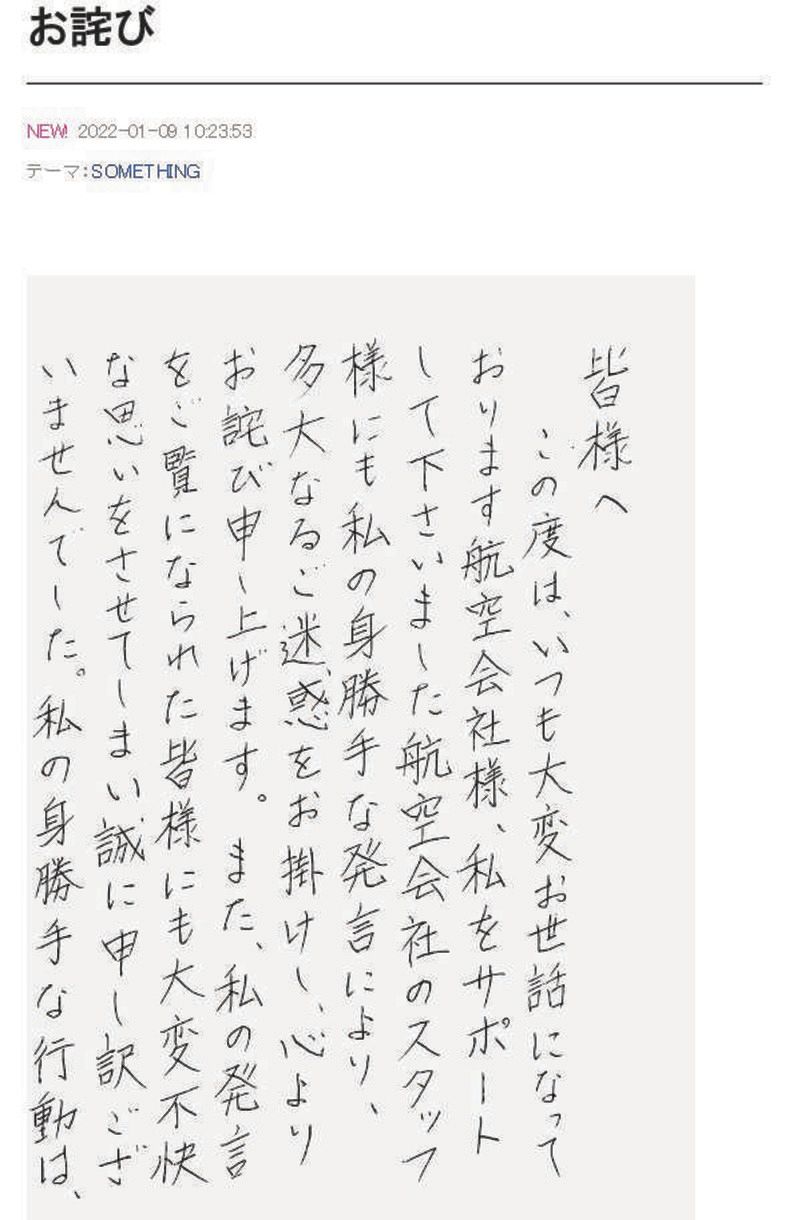 お詫び
NEW! 2022-01-09 10:23:53
テーマ：SOMETHING
皆様へ
この度は、いつも大変お世話になって
おります航空会社様、私をサポート
して下さいました航空会社のスタッフ
様にも私の身勝手な発言により、
多大なるご迷惑をお掛けし、心より
お詫び申し上げます。また、私の発言
をご覧になられた皆様にも大変不快
な思いをさせてしまい誠に申し訳ござ
いませんでした。私の身勝手な行動は、